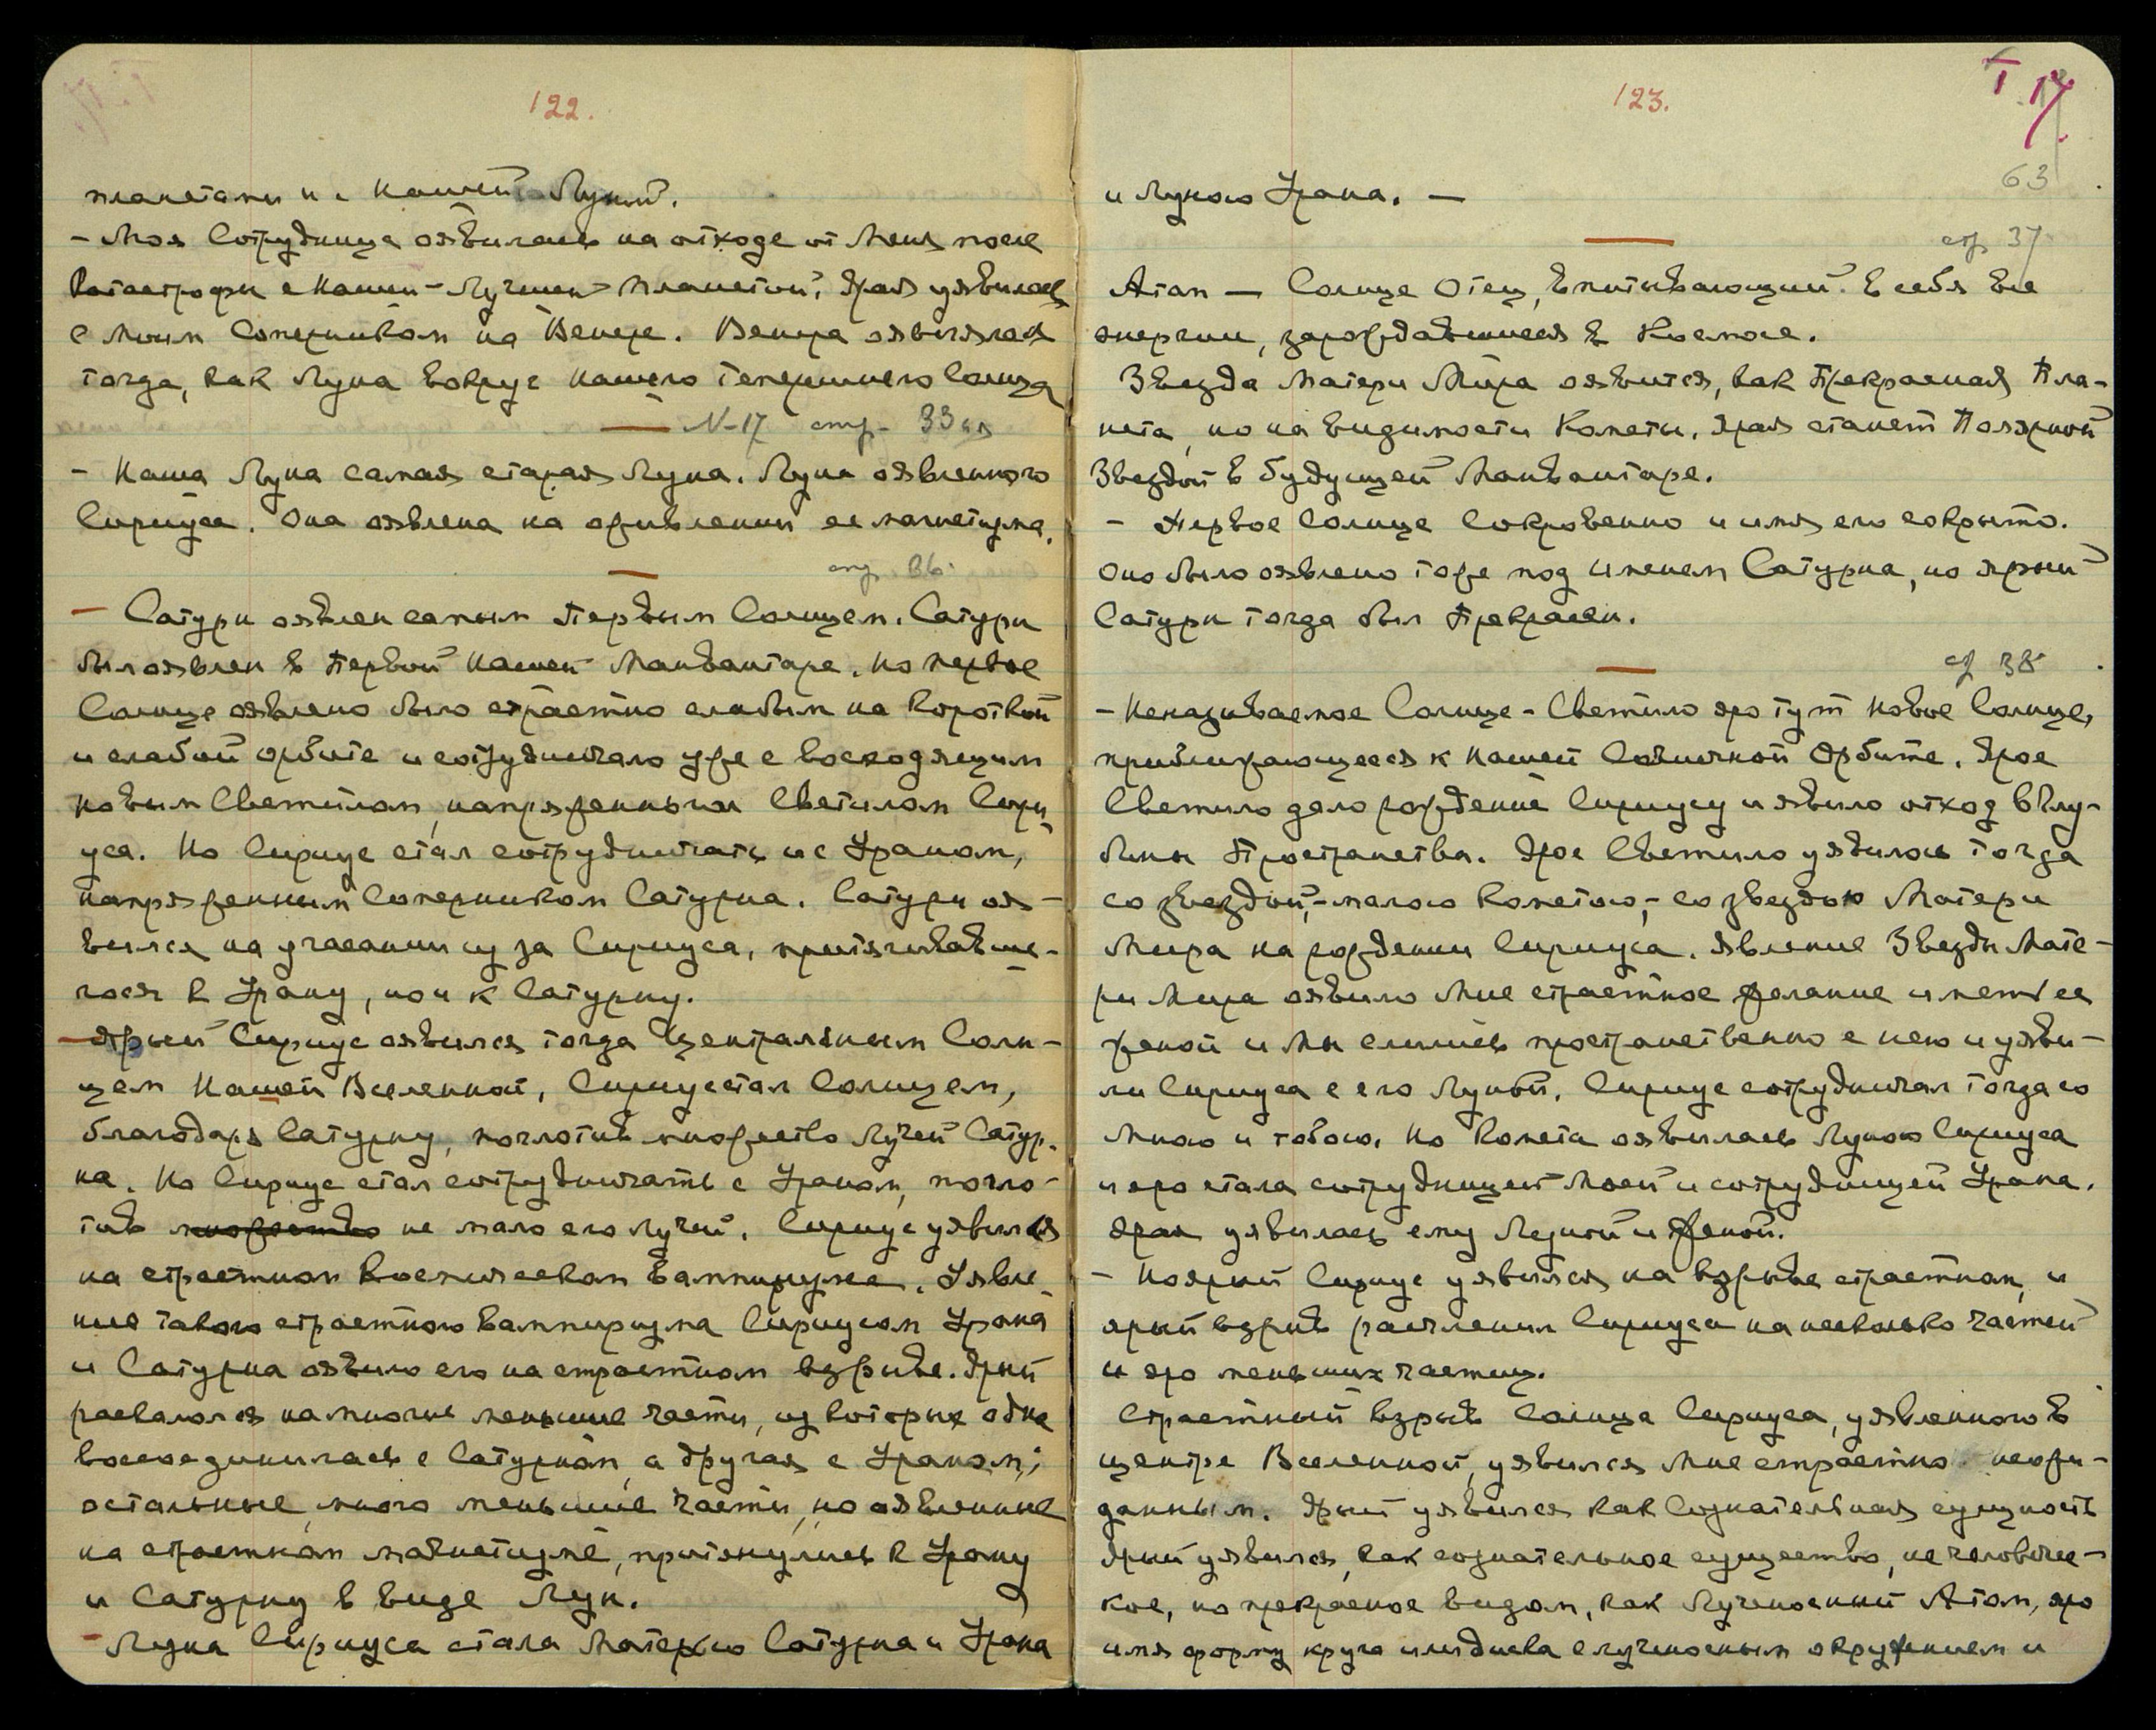 122.
планетами и с нашей Луной.
– Моя Сотрудница оявилась на отходе от Меня после
Катастрофы с Нашей – Лучшей Планетой. Ярая уявилась
с Моим Соперником на Венере. Венера оявлялась
тогда, как Луна вокруг нашего теперешнего Солнца
N-17 стр. 33
– Наша Луна самая старая Луна. Луна оявленного
Сириуса. Она оявлена на оживлении ее магнетизма.
стр. 36.
– Сатурн оявлен самым Первым Солнцем. Сатурн
был оявлен в Первой Нашей Манвантаре. Но первое
Солнце оявлено было страстно слабым на Короткой
и слабой орбите и сотрудничало уже с восходящим
новым Светилом, напряженным Светилом Сири-
уса. Но Сириус стал сотрудничать и с Ураном,
напряженным Соперником Сатурна. Сатурн оя-
вился на угасании из за Сириуса, притягивавше-
гося к Урану, но и к Сатурну.
– Ярый Сириус оявился тогда Центральным Солн-
цем Нашей Вселенной, Сириус стал Солнцем,
благодаря Сатурну, поглотив множество Лучей Сатур-
на. Но Сириус стал сотрудничать с Ураном, погло-
тив множество не мало его Лучей. Сириус уявился
на страстном Космическом Вампиризме. Уявле-
ние такого страстного вампиризма Сириусом Урана
и Сатурна оявило его на страстном взрыве. Ярый
распался на многие меньшие части, из которых одна
воссоединилась с Сатурном, а другая с Ураном;
остальные, много меньшие части, но оявленные
на страстном магнетизме, притянулись к Урану
и Сатурну в виде Лун.
– Луна Сириуса стала Матерью Сатурна и Урана
123.
Т 17.
63
и Луною Урана. —
стр 37
Атом — Солнце Отец, впитывающий в себя все
энергии, зарождавшиеся в Космосе.
Звезда Матери Мира оявится, как Прекрасная Пла-
нета, но на видимости Кометы. Ярая станет Полярной
Звездой в будущей Манвантаре.
– Первое Солнце Сокровенно и имя его сокрыто.
Оно было оявлено тоже под именем Сатурна, но ярый
Сатурн тогда был Прекрасен.
стр 38
– Неназываемое Солнце – Светило яро тут Новое Солнце,
приближающееся к Нашей Солнечной Орбите. Ярое
Светило дало рождение Сириусу и явило отход в Глу-
бины Пространства. Ярое Светило уявилось тогда
со звездой, – малою Кометою, – со звездою Матери
Мира на рождении Сириуса. Явление Звезды Мате-
ри Мира оявило Мне страстное желание иметь ее
женой и Мы слились пространственно с нею и уяви-
ли Сириуса с его Луной. Сириус сотрудничал тогда со
Мною и тобою. Но Комета оявилась Луною Сириуса
и яро стала сотрудницей Моей и сотрудницей Урана.
Ярая уявилась ему Луной и Женой.
– Но ярый Сириус уявился на взрыве страстном, и
ярый взрыв расчленил Сириуса на несколько частей
и яро меньших частиц.
Страстный взрыв Солнца Сириуса, уявленного в
центре Вселенной, уявился Мне страстно неожи-
данным. Ярый уявился как Сознательная сущность
Ярый уявился, как сознательное существо, не человечес-
кое, но прекрасное видом, как Лученосный Атом, яро
имя форму круга или диска с лученосным окружением и